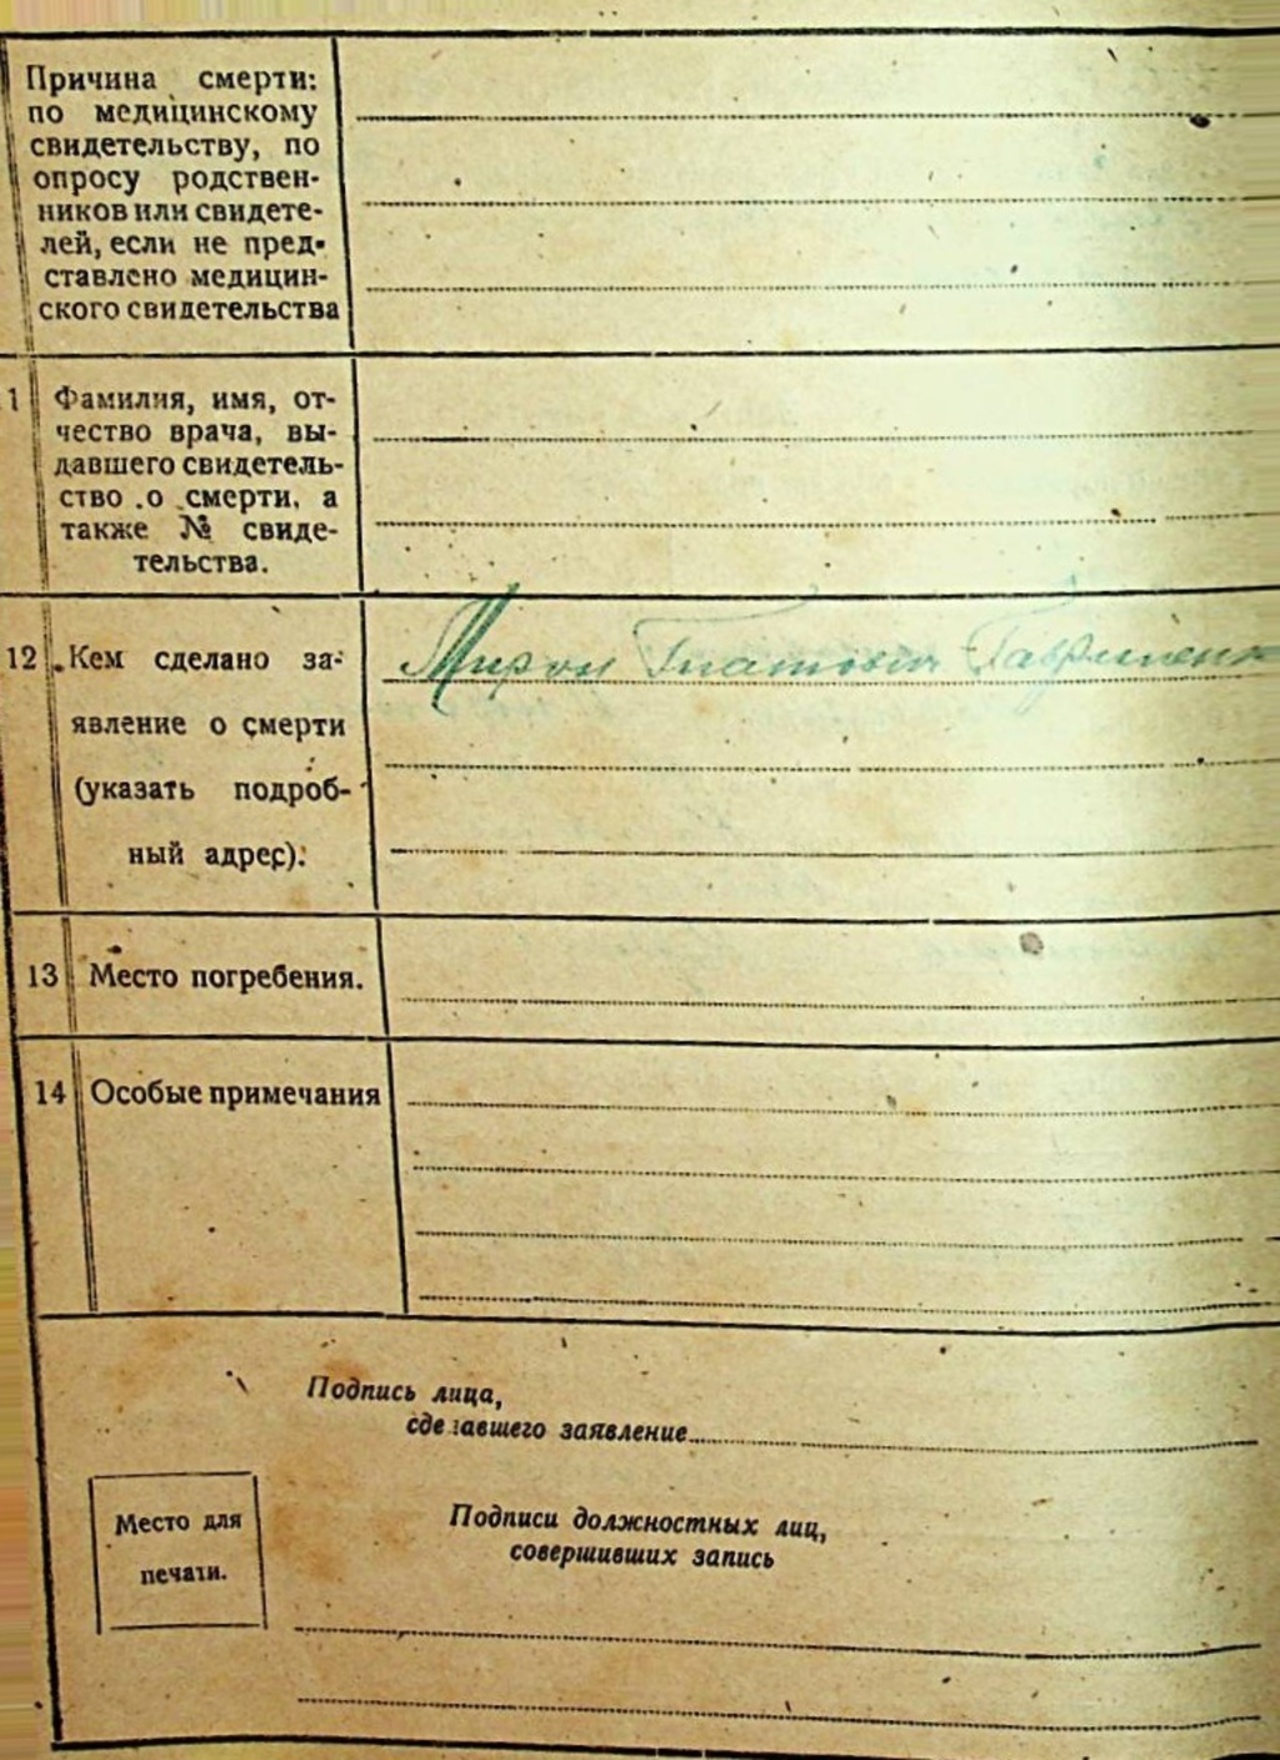 Причина смерти:
по медицинскому
свидетельству, по
опросу родствен-
ников или свидете-
лей, если не пред-
ставлено медицин-
ского свидетельства
1 Фамилия, имя, от-
чество врача, вы-
давшего свидетель-
ство о смерти, а
также № свиде-
тельства.
12 Кем сделано за- Мирон
явление о смерти
(указать подроб-
ный адрес):
13 Место погребения.
14 Особые примечания
Подпись лица,
сделавшего заявление
Место для
печати.
Подписи должностных лиц,
совершивших запись